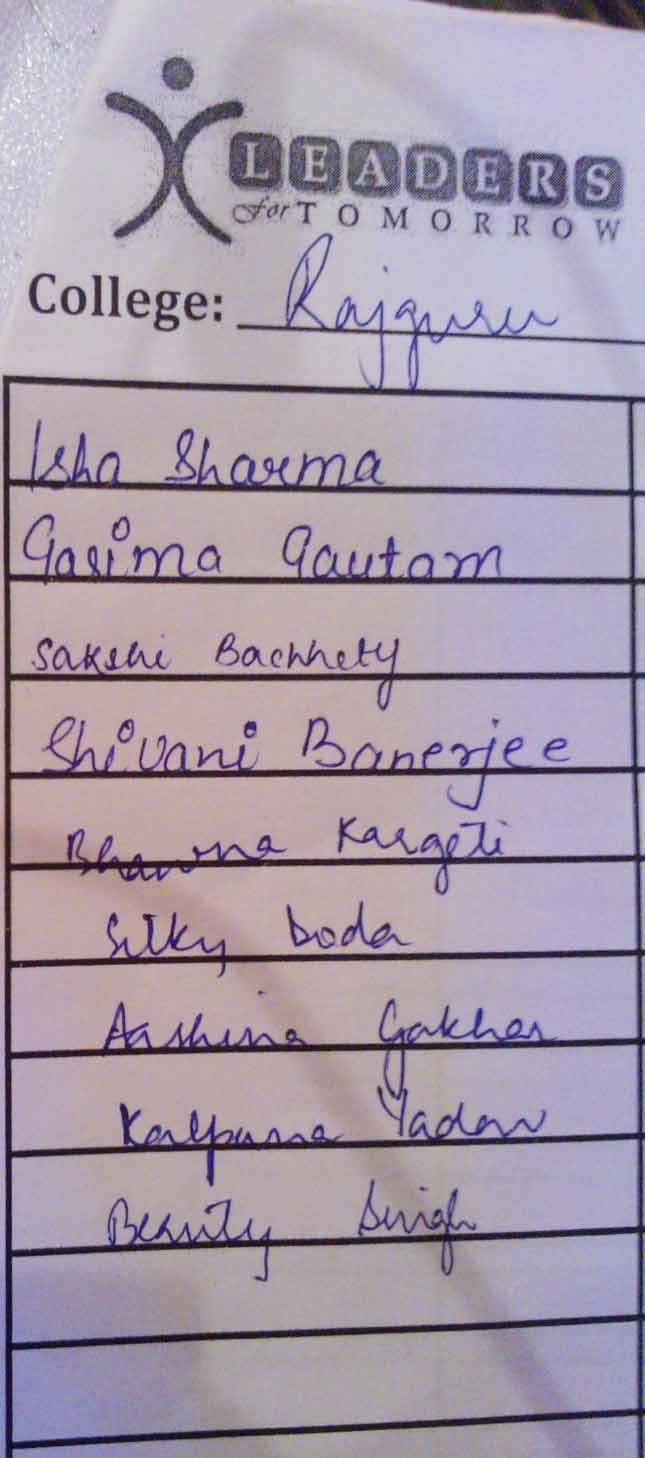 LEADERS
for TOMORROW
College: Rajguru
Isha Sharma
Garima Gautam
Sakshi Bachhety
Shivani Banerjee
Bhawna Kargeti
Silky Doda
Aashina Gakhar
Kalpana Yadav
Beauty Singh